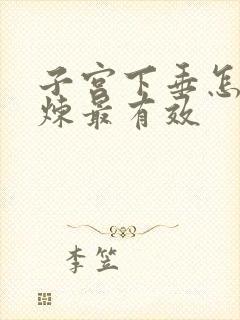 子宫下垂怎
炼最有效
李笠